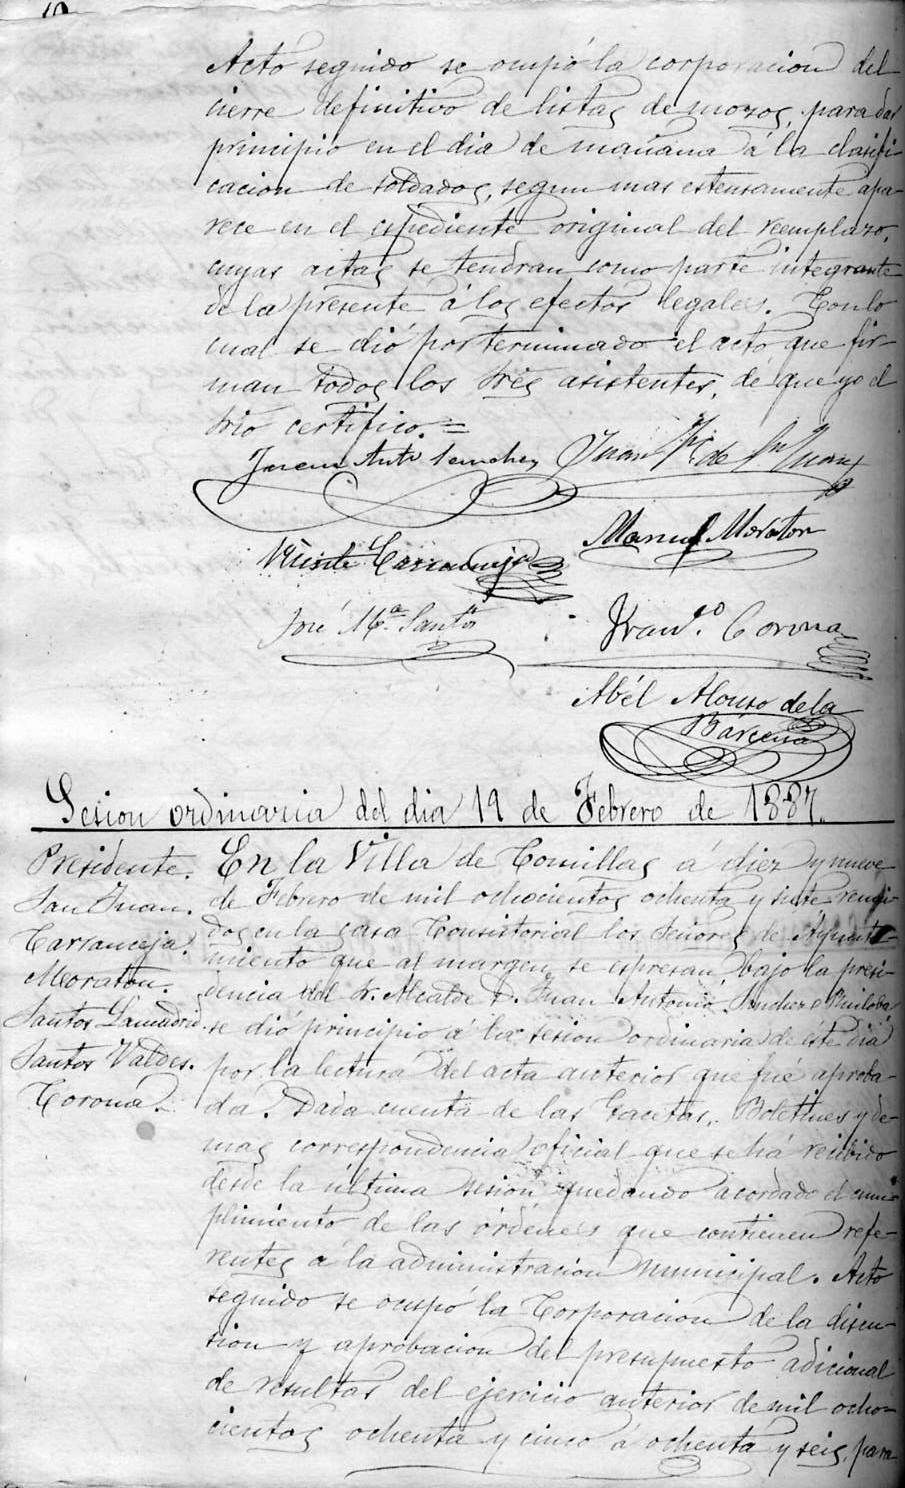 Acto seguido se ocupó la corporacion del
cierre definitivo de listas de mozos, para dar
principio en el dia de mañana á la clasifi-
cacion de soldados, segun mas estensamente apa-
rece en el espediente original del reemplazo,
cuyas actas se tendran como parte integrante
de la presente á los efectos legales. Con lo
cual se dió por terminado el acto que fir-
man todos los Sres asistentes, de que yo el
Srio certifico. =
Juan Anto Sanchez Juan de Sn Juan
Manuel Moraton
Vicente Carranceja
José Ma. Santos Franco. Corona
Abél Alonso de la
Bárcena
Sesion ordinaria del dia 19 de Febrero de 1887.
Presidente.
San Juan.
Carranceja.
Moraton.
Santos Lamadrid.
Santos Valdes.
Corona.
En la Villa de Comillas á diez y nueve
de Febrero de mil ochocientos ochenta y siete reuni-
dos en la casa Consistorial los Señores de Ayunta-
miento que al margen se espresan bajo la presi-
dencia del Sr. Alcalde D. Juan Antonio Sanchez
se dió principio á la sesion ordinaria de éste dia
por la lectura del acta anterior que fué aproba-
da. Dada cuenta de las Gacetas, Boletines y de-
mas correspondencia oficial que se há recibido
desde la última sesion quedando acordado el cum-
plimiento de las órdenes que contienen refe-
rentes a la administracion municipal. Acto
seguido se ocupó la Corporacion de la discu-
sion y aprobacion del presupuesto adicional
de resultas del ejercicio anterior de mil ocho-
cientos ochenta y cinco á ochenta y seis, para